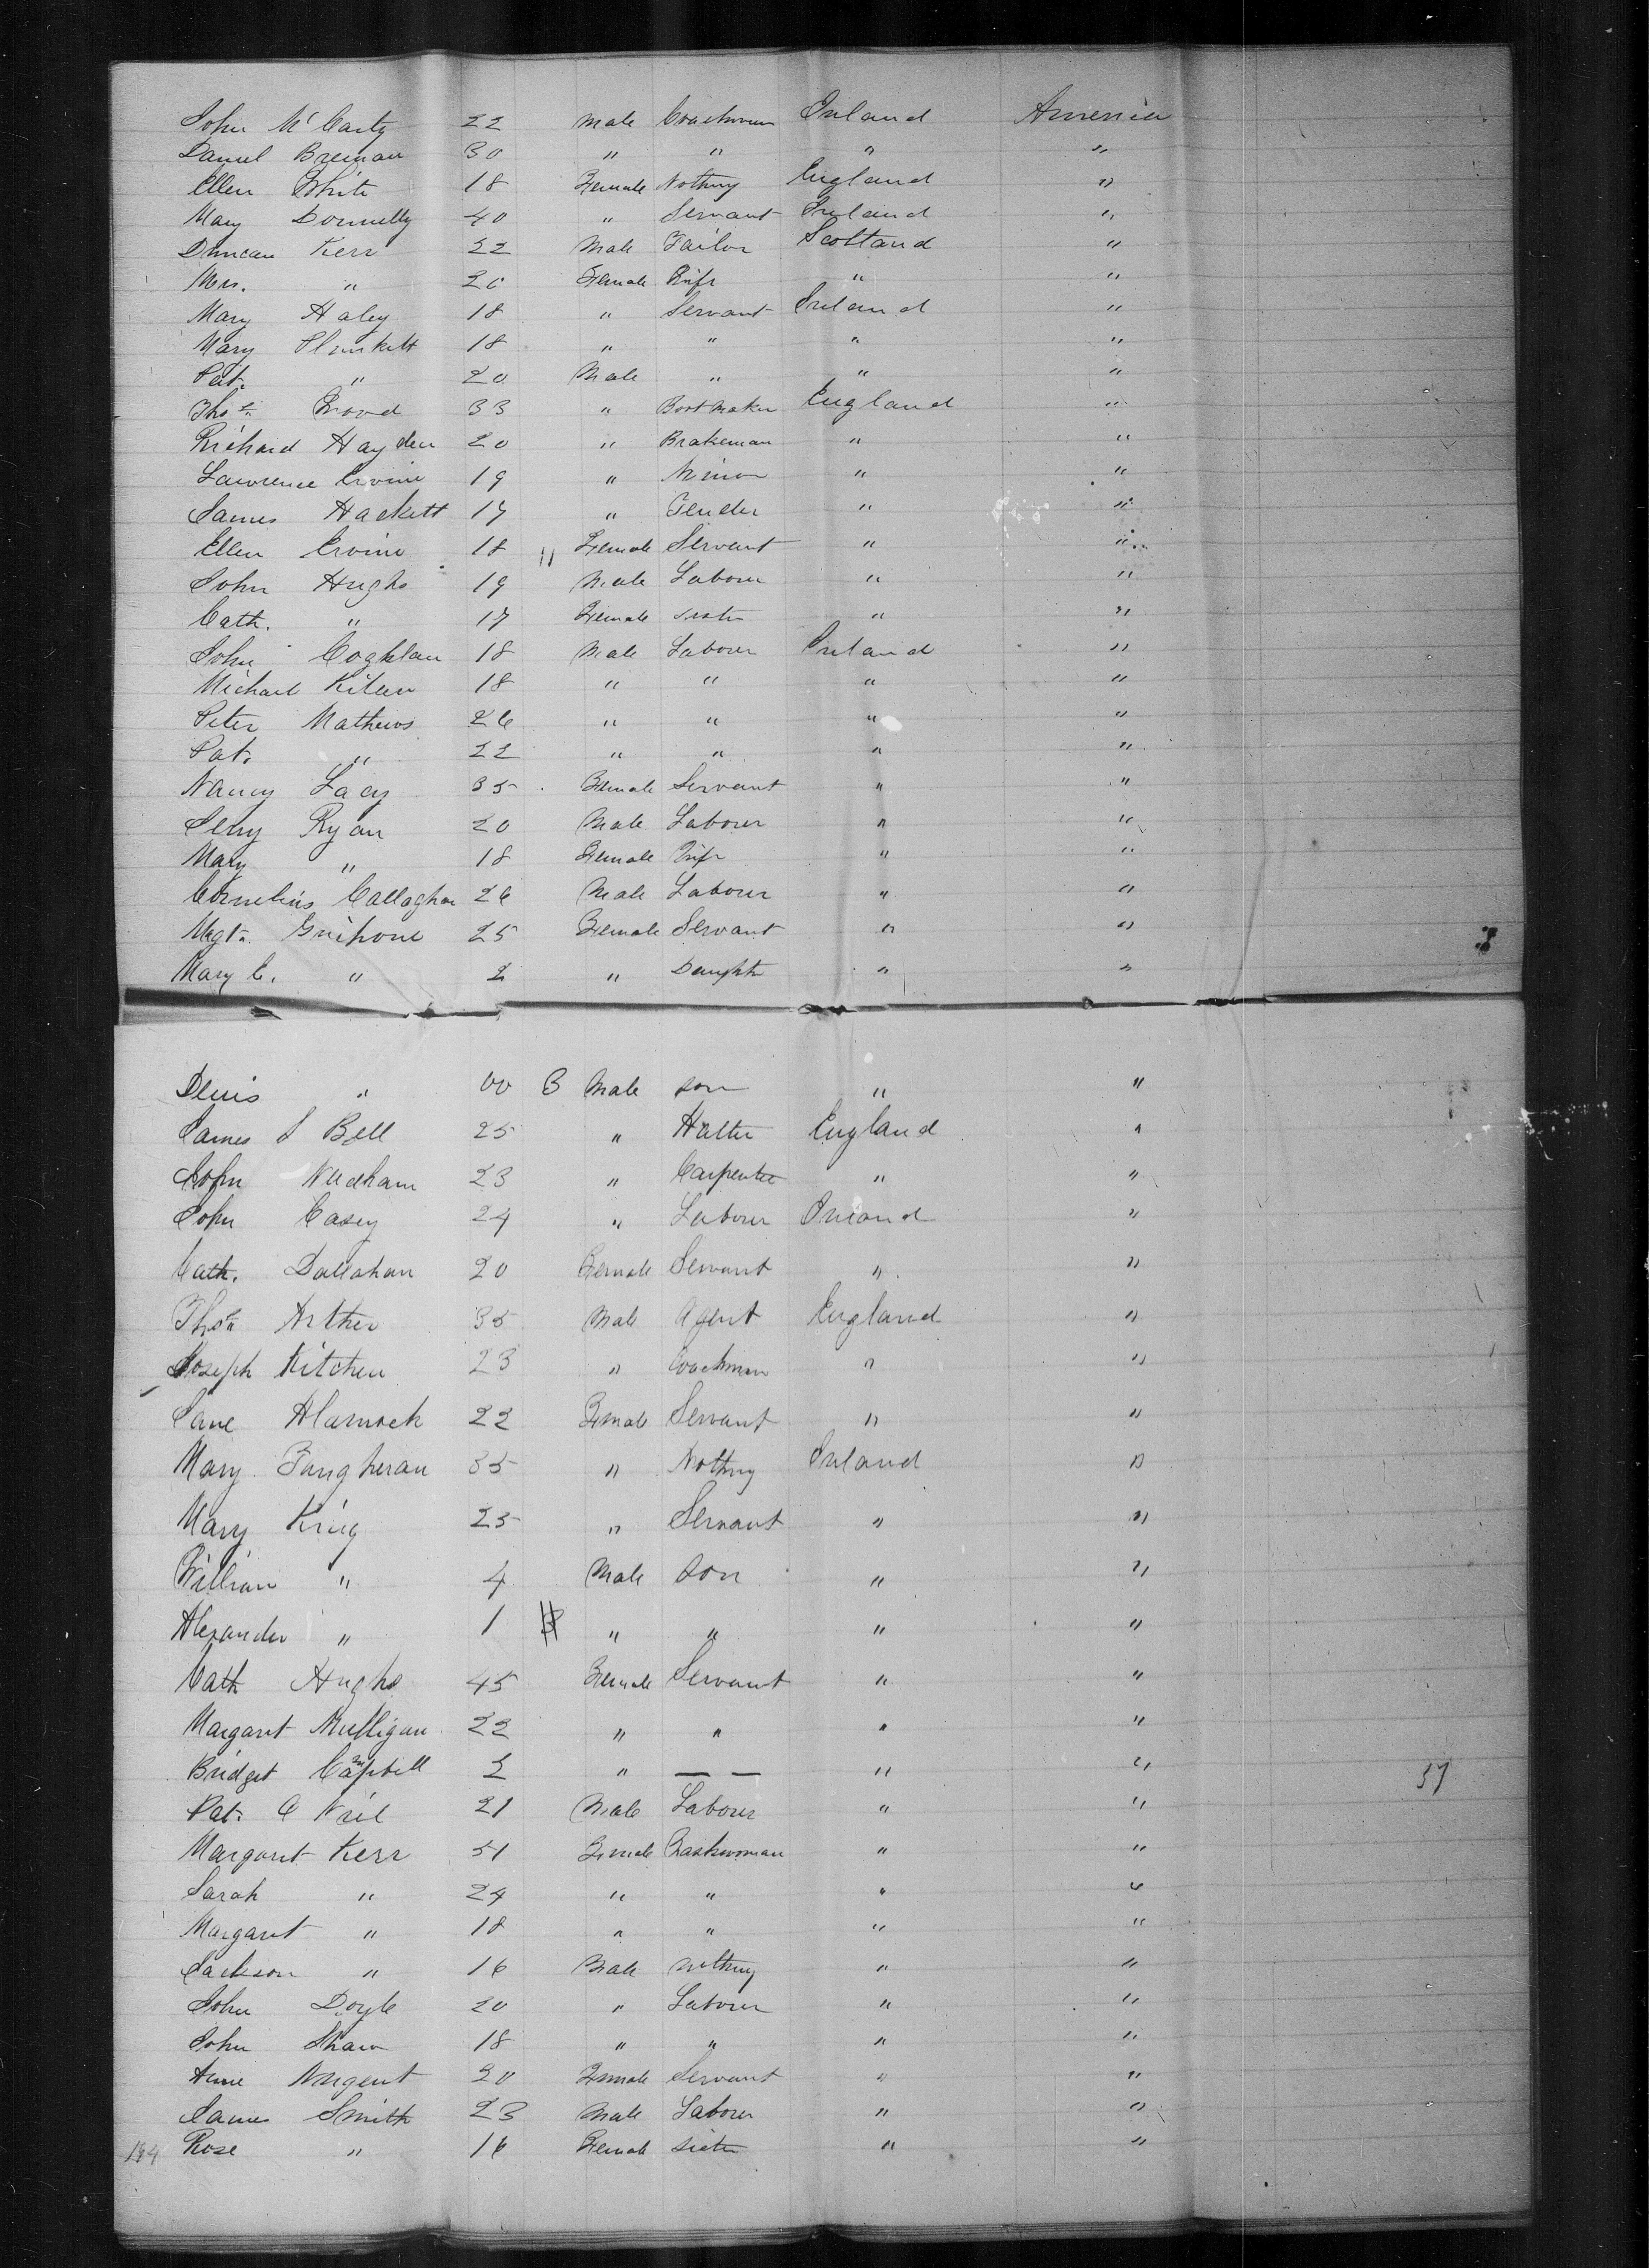 John McCarty 22 Male Coachman Ireland America
Daniel Brennan 30 " " " "
Ellen White 18 Female Nothing England "
Mary Donnelly 40 " Servant Ireland "
Duncan Kerr 22 Male Tailor Scotland "
Mrs. " 20 Female Wife " "
Mary Haley 18 " Servant Ireland "
Mary Plunkett 18 " " " "
Pat. " 20 Male " " "
Thos. Wood 33 " Bootmaker England "
Richard Hayden 20 " Brakeman " "
Lawrence Ervine 19 " Minor " "
James Hackett 17 " Tender " "
Ellen Ervine 18 " Female Servant " "
John Hughs 19 Male Laborer " "
Cath. " 17 Female Sister " "
John Coghlan 18 Male Laborer Ireland "
Michael Kileen 18 " " " "
Peter Mathews 26 " " " "
Pat. " 22 " " " "
Nancy Lacy 35 Female Servant " "
Jerry Ryan 20 Male Laborer " "
Mary " 18 Female Wife " "
Cornelius Callaghan 26 Male Laborer " "
Mgt. 25 Female Servant " "
Mary C. " 2 " Daughter " "
Denis " 00 3 Male son " "
James S Bell 25 " Hatter England "
John Needham 23 " Carpenter " "
John Casey 24 " Laborer Ireland "
Cath. Dallahan 20 Female Servant " "
Thos. Arther 35 Male Agent England "
Joseph Kitchen 23 " Coachman " "
Jane 22 Female Servant " "
Mary 35 " Nothing Ireland "
Mary King 25 " Servant " "
William " 4 Male son " "
Alexander " 1 " " " "
Cath Hughs 45 Female Servant " "
Margaret Mulligan 22 " " " "
Bridget Campbell 2 " — — " " 57
Pat. O Neil 21 Male Laborer " "
Margaret Kerr 51 Female Washwoman " "
Sarah " 24 " " " "
Margaret " 18 " " " "
Jackson " 16 Male nothing " "
John Doyle 20 " Laborer " "
John Shaw 18 " " " "
Anne Nugent 20 Female Servant " "
James Smith 23 Male Laborer " "
194 Rose " 16 Female sister " "